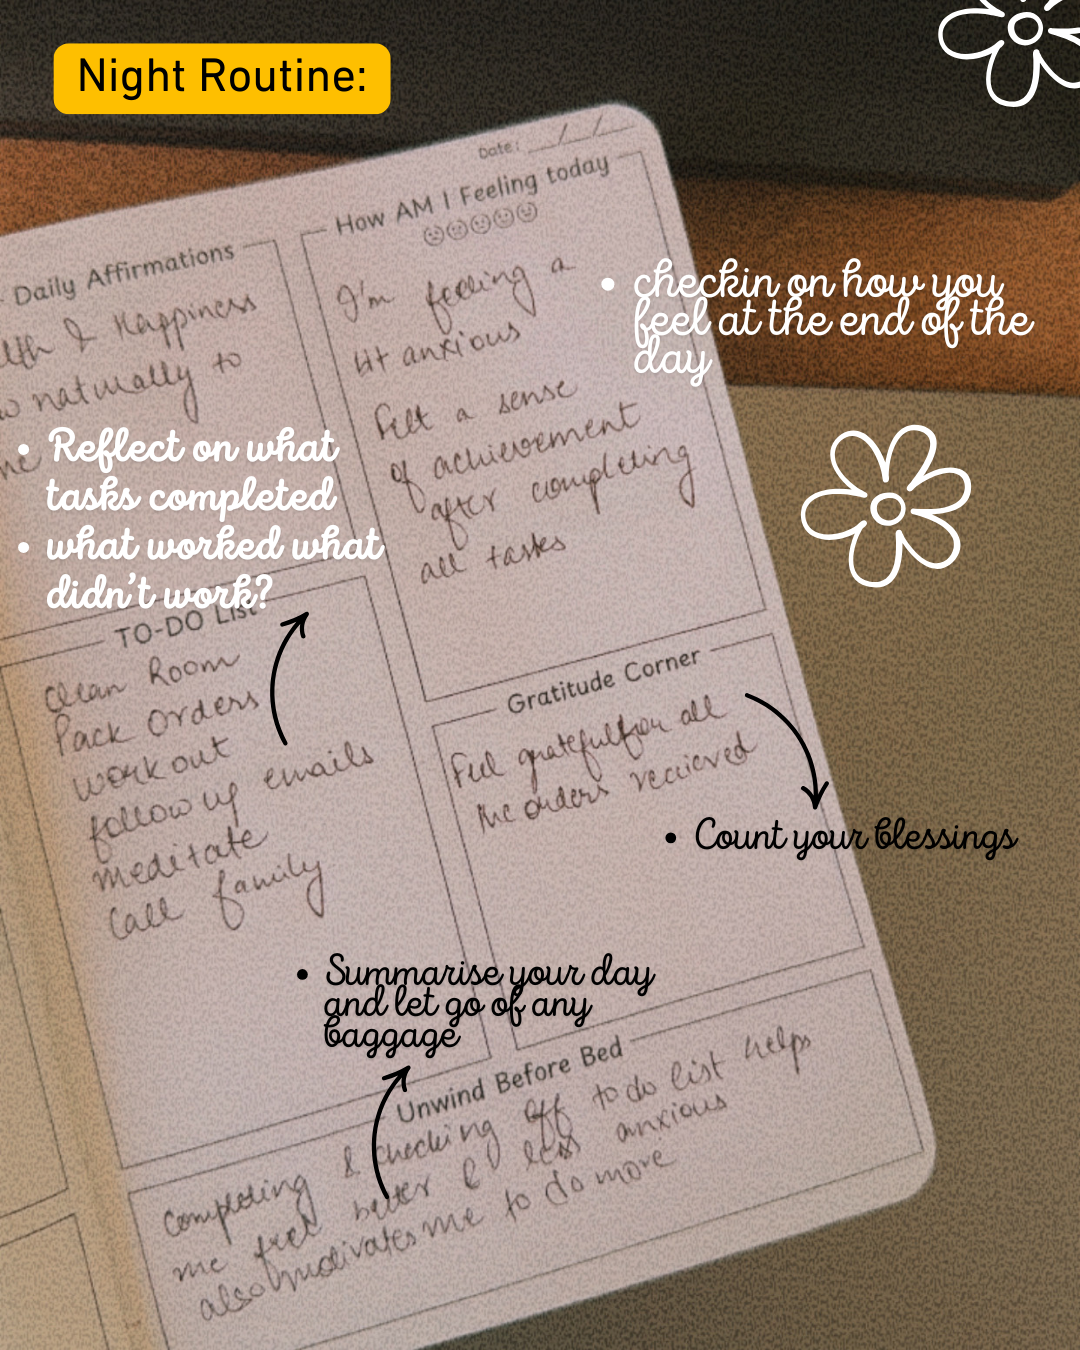 Night Routine:
Date: __/__/__
How AM I Feeling today
I'm feeling a
bit anxious
Felt a sense
of achievement
after completing
all tasks
• checkin on how you
feel at the end of the
day
Daily Affirmations
& Happiness
naturally to
• Reflect on what
tasks completed
• what worked what
didn't work?
TO-DO List
Clean Room
Pack Orders
workout
follow up emails
meditate
Call family
Gratitude Corner
Feel grateful for all
the orders recieved
• Count your blessings
• Summarise your day
and let go of any
baggage
Unwind Before Bed
Completing & checking off to do list helps
me feel better & less anxious
also motivates me to do more